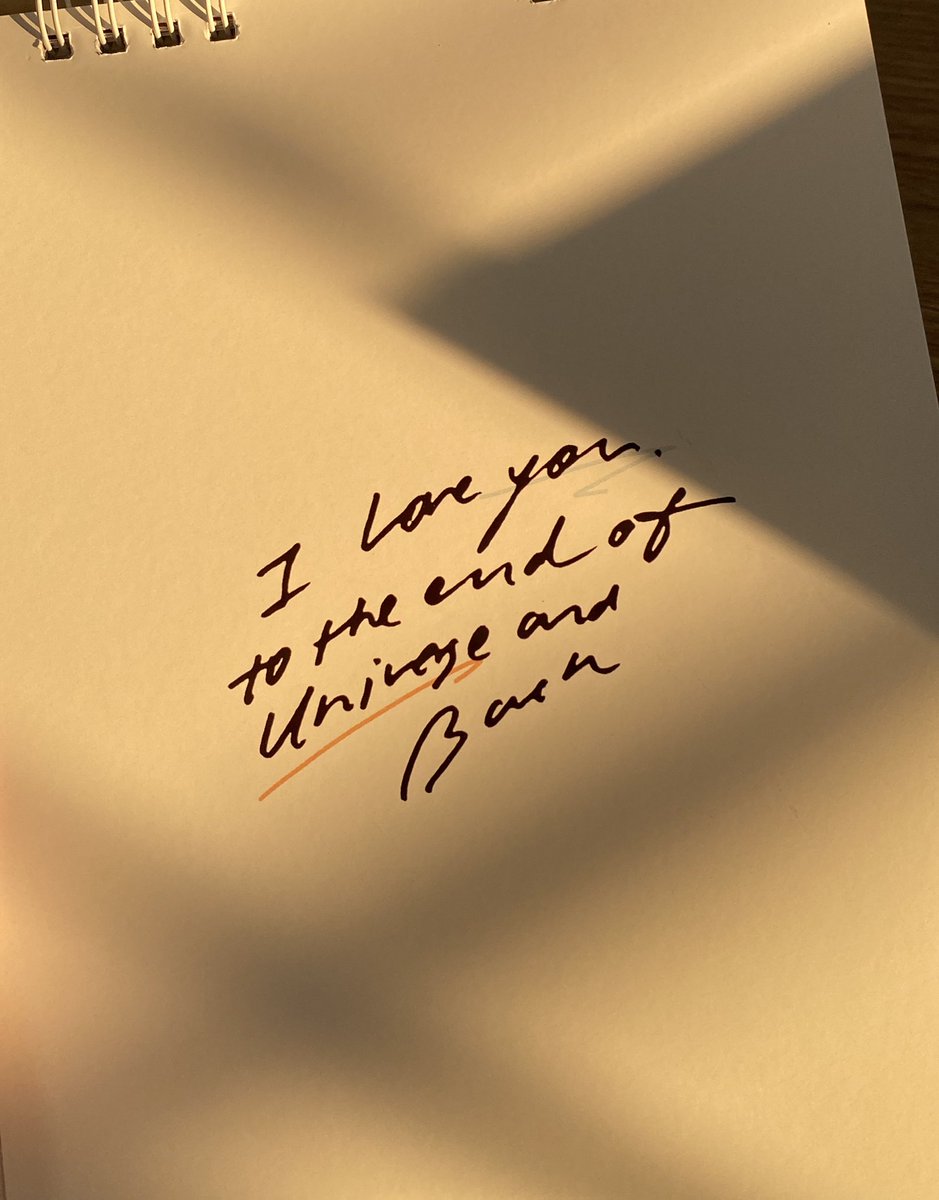 I love you.
to the end of
Universe and
Back